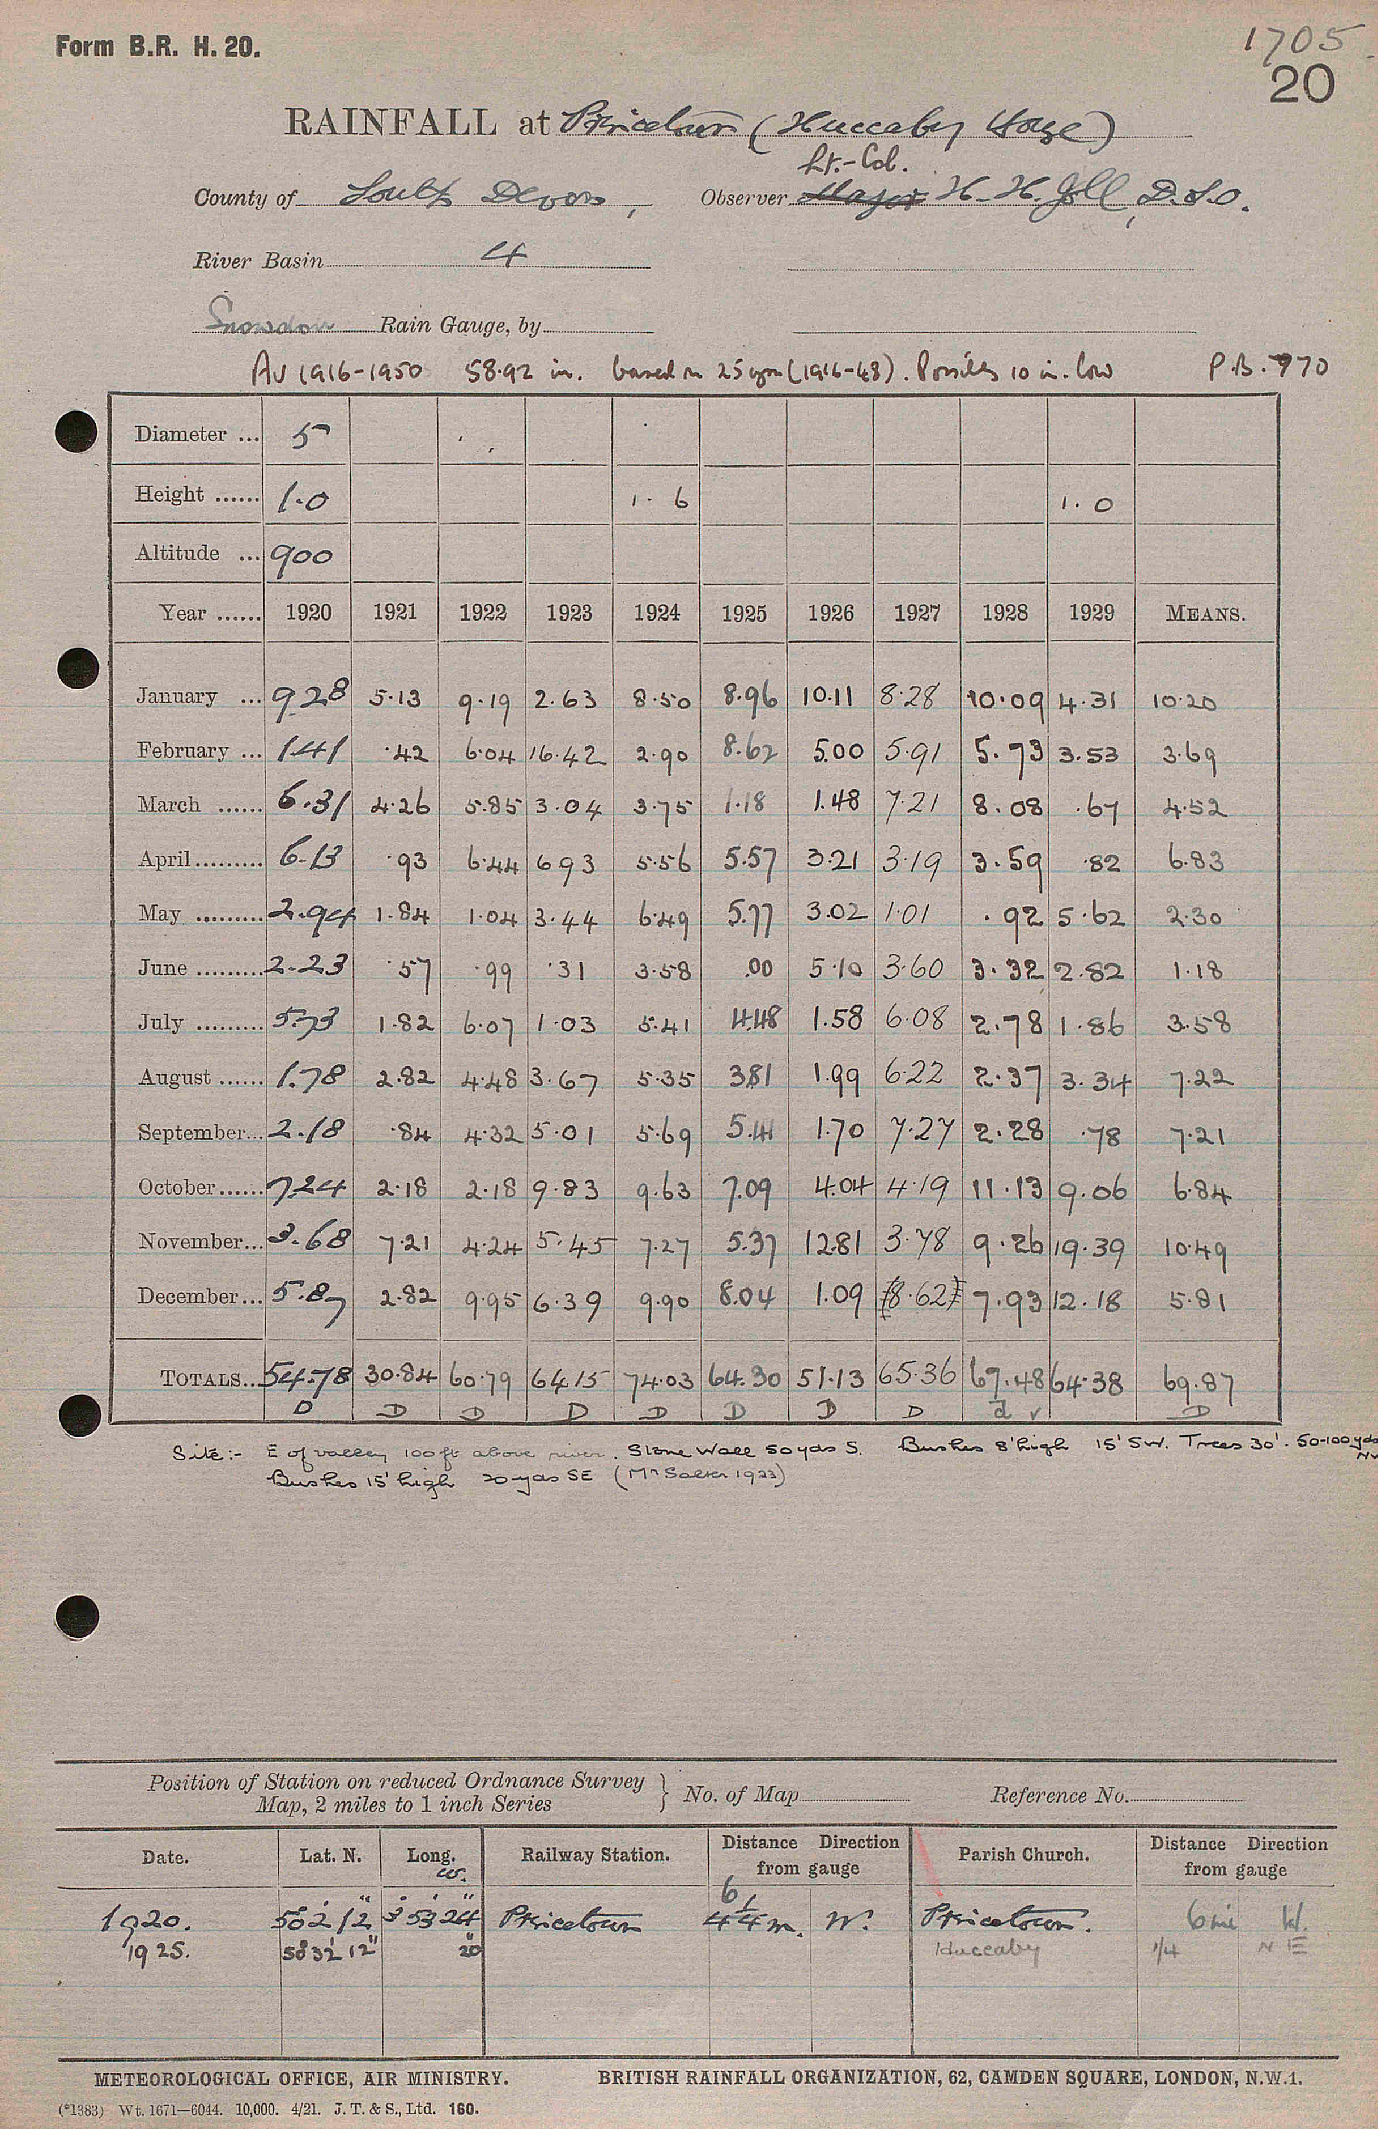 Form B.R. H. 20.
1705
20
RAINFALL at Princetown (Huccaby House)
Lt.-Col.
County of South Devon, Observer Major H. H. Joll, D.S.O.
River Basin 4
Snowdon Rain Gauge, by
Av 1916-1950 58.92 in. based on 25 yrs (1916-48). Possibly 10 in. low P.B. 770
Diameter ... 5
Height ...... 1.0 1.6 1.0
Altitude ... 900
Year ...... 1920 1921 1922 1923 1924 1925 1926 1927 1928 1929 MEANS.
January ... 9.28 5.13 9.19 2.63 8.50 8.96 10.11 8.28 10.09 4.31 10.20
February ... 1.41 .42 6.04 16.42 2.90 8.62 5.00 5.91 5.73 3.53 3.69
March ...... 6.31 4.26 5.85 3.04 3.75 1.18 1.48 7.21 8.08 .67 4.52
April ......... 6.13 .93 6.44 6.93 5.56 5.57 3.21 3.19 3.59 .82 6.83
May ......... 2.94 1.84 1.04 3.44 6.49 5.77 3.02 1.01 .92 5.62 2.30
June ......... 2.23 .57 .99 .31 3.58 .00 5.10 3.60 3.32 2.82 1.18
July ......... 5.73 1.82 6.07 1.03 5.41 4.48 1.58 6.08 2.78 1.86 3.58
August ...... 1.78 2.82 4.48 3.67 5.35 3.81 1.99 6.22 2.37 3.34 7.22
September... 2.18 .84 4.32 5.01 5.69 5.41 1.70 7.27 2.28 .78 7.21
October...... 7.24 2.18 2.18 9.83 9.63 7.09 4.04 4.19 11.13 9.06 6.84
November... 3.68 7.21 4.24 5.45 7.27 5.37 12.81 3.78 9.26 19.39 10.49
December... 5.87 2.82 9.95 6.39 9.90 8.04 1.09 8.62 7.93 12.18 5.81
TOTALS.. 54.78 30.84 60.79 64.15 74.03 64.30 51.13 65.36 67.48 64.38 69.87
D D D D D D D D d v D
Site:- E of valley 100ft above river. Stone Wall 50yds S. Bushes 8' high 15' SW. Trees 30'. 50-100yds NW
Bushes 15' high 20 yds SE (Mr Salter 1923)
Position of Station on reduced Ordnance Survey
Map, 2 miles to 1 inch Series } No. of Map Reference No.
Date. Lat. N. Long. W. Railway Station. Distance Direction from gauge Parish Church. Distance Direction from gauge
1920. 50° 2' 12" 3° 53' 24" Princetown 6 4¼ m. W. Princetown. 6 mi W.
1925. 50° 32' 12" 20" Huccaby 1/4 NE
METEOROLOGICAL OFFICE, AIR MINISTRY. BRITISH RAINFALL ORGANIZATION, 62, CAMDEN SQUARE, LONDON, N.W.1.
(*1383) Wt. 1671—6044. 10,000. 4/21. J. T. & S., Ltd. 160.